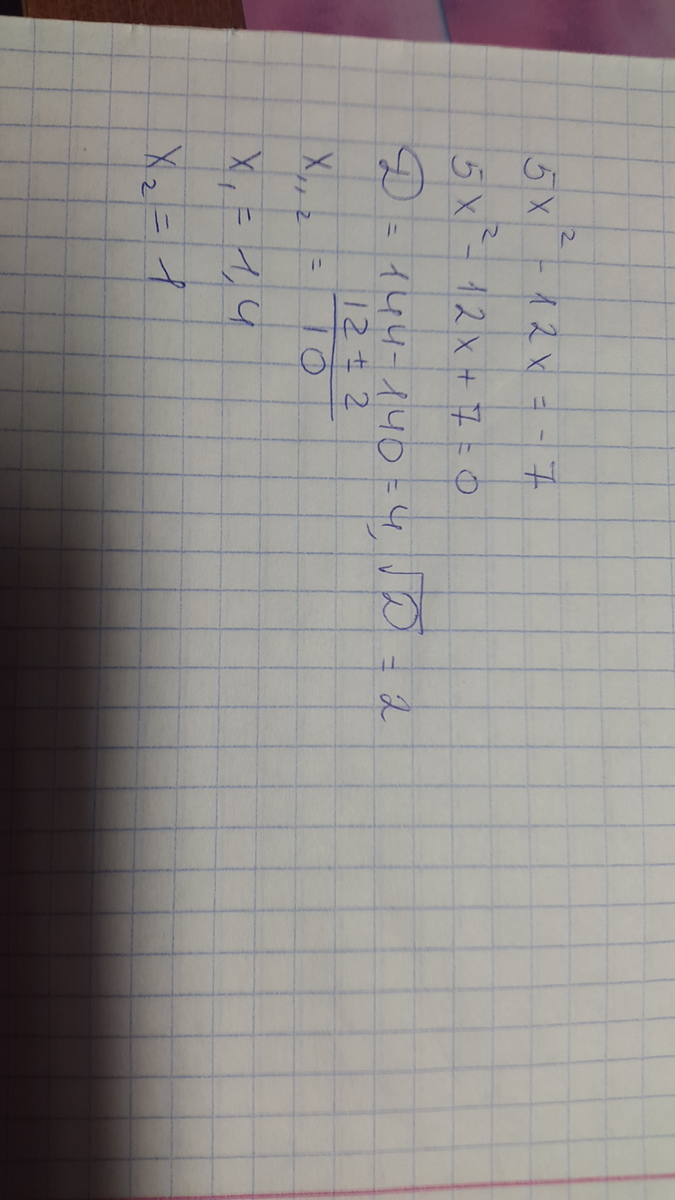 5x² - 12x = -7
5x² - 12x + 7 = 0
D = 144 - 140 = 4, √D = 2
x₁,₂ = (12 ± 2)/10
x₁ = 1,4
x₂ = 1